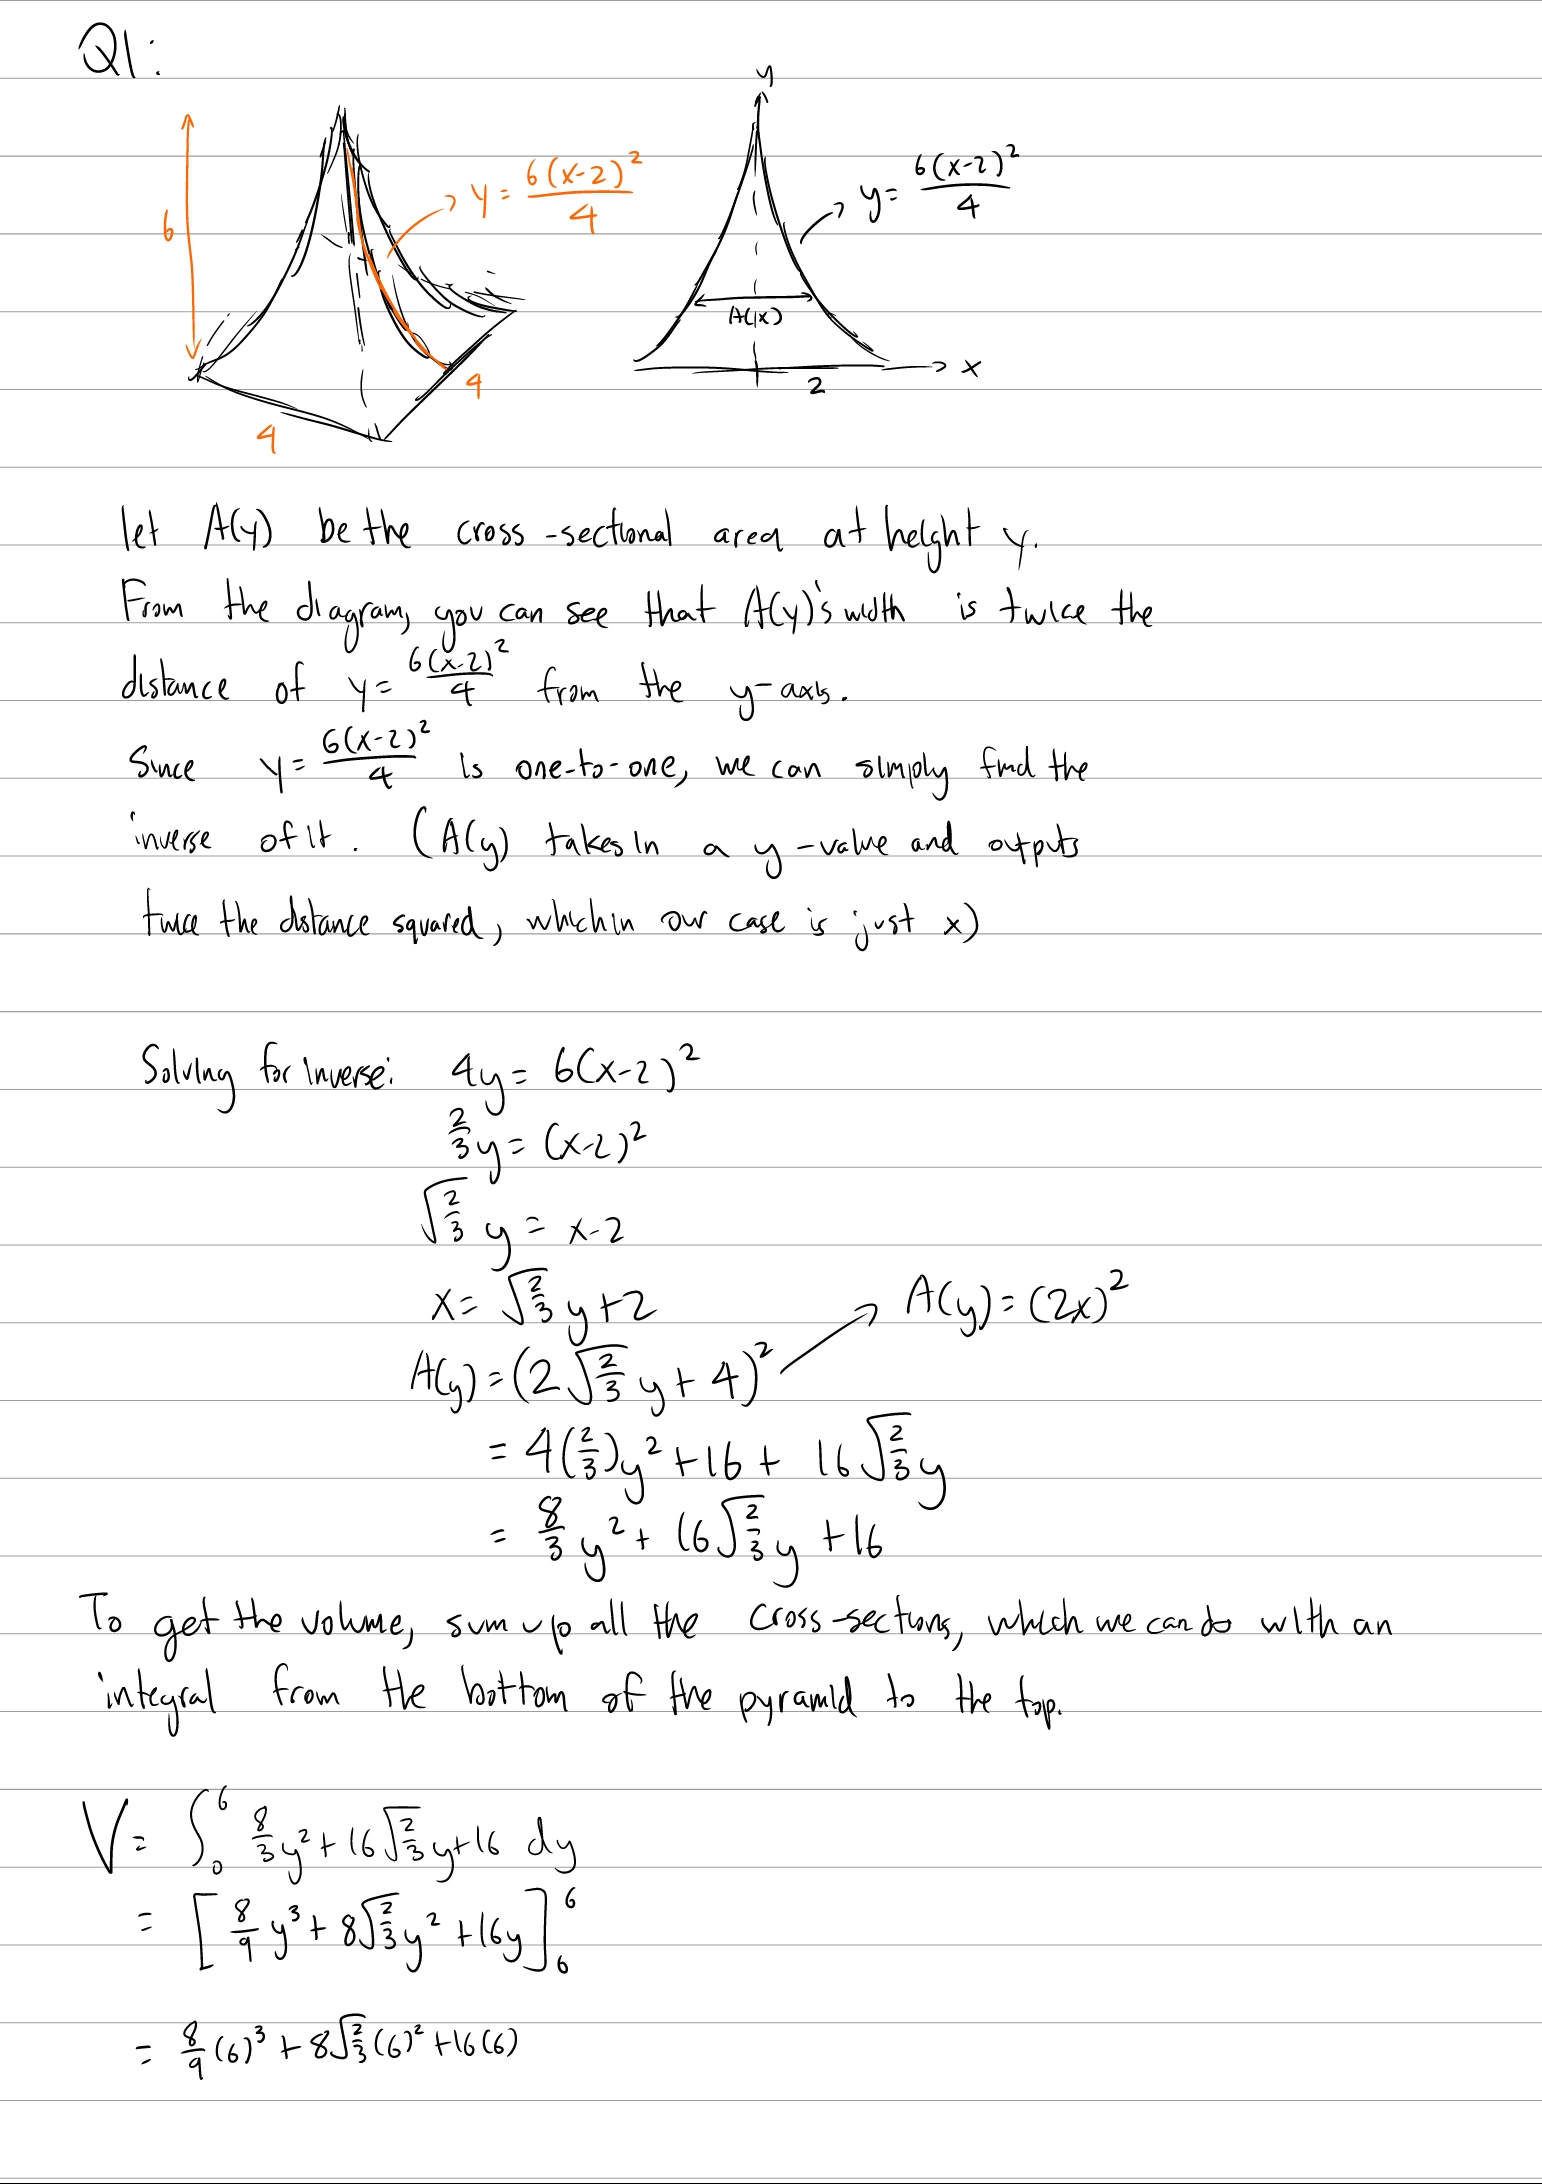 Q1:
y
6
y = 6(x-2)²/4
y = 6(x-2)²/4
A(x)
4
4
2
x
let A(y) be the cross-sectional area at height y.
From the diagram, you can see that A(y)'s width is twice the
distance of y = 6(x-2)²/4 from the y-axis.
Since y = 6(x-2)²/4 is one-to-one, we can simply find the
inverse of it. (A(y) takes in a y-value and outputs
twice the distance squared, which in our case is just x)
Solving for inverse: 4y = 6(x-2)²
2/3 y = (x-2)²
√(2/3) y = x-2
x = √(2/3) y + 2
A(y) = (2x)²
A(y) = (2√(2/3) y + 4)²
= 4(2/3)y² + 16 + 16√(2/3) y
= 8/3 y² + 16√(2/3) y + 16
To get the volume, sum up all the cross-sections, which we can do with an
integral from the bottom of the pyramid to the top.
V = ∫₀⁶ 8/3 y² + 16√(2/3) y + 16 dy
= [8/9 y³ + 8√(2/3) y² + 16y]⁶₆
= 8/9 (6)³ + 8√(2/3) (6)² + 16(6)